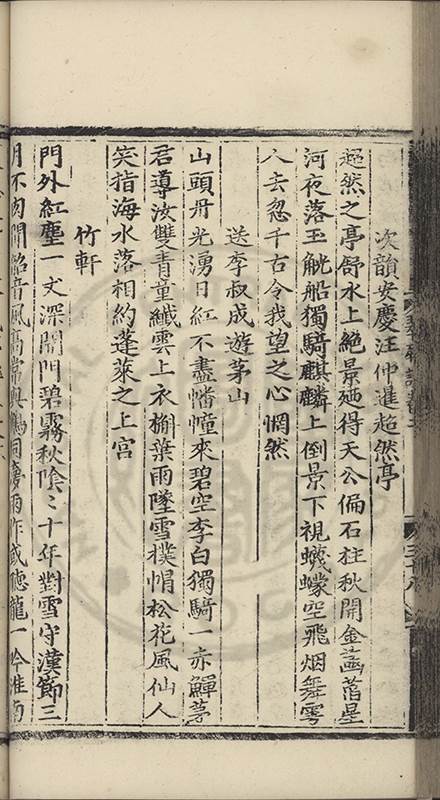 次韻安慶汪仲暹超然亭
超然之亭舒水上絶景廼得天公偏石柱秋開金菡萏星
河夜落玉觥船獨騎麒麟上倒景下視蠛蠓空飛烟舞雩
人去忽千古令我望之心惘然
送李叔成遊茅山
山頭丹光湧日紅不盡幡幢來碧空李白獨騎一赤鯶茅
君導汝雙青童纖雲上衣槲葉雨墜雪襆帽松花風仙人
笑指海水落相約蓬萊之上宮
竹軒
門外紅塵一丈深閉門碧霧秋陰〻十年對雪守漢節三
月不肉聞韶音風高常與鶴同慶雨作或聽龍一吟淮南